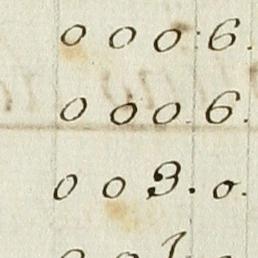 0 0 0 . 6 .
0 0 0 . 6 .
0 0 3 . 0 .